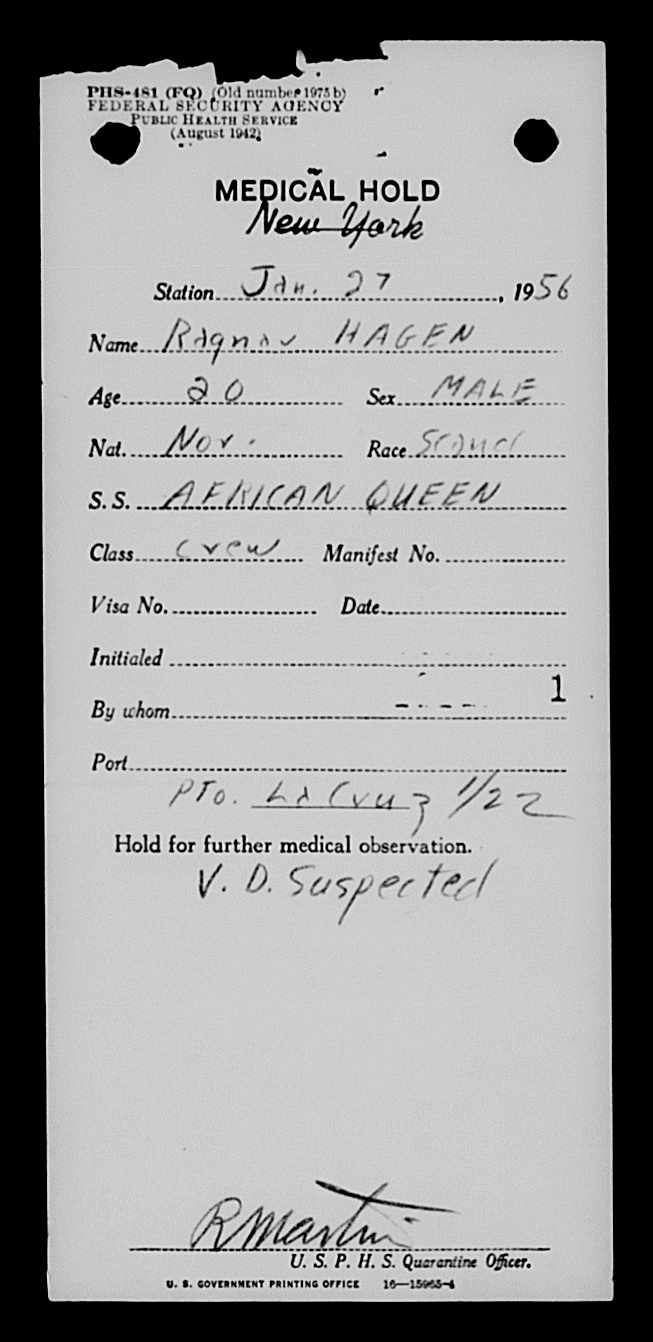 PHS-481 (FQ) (Old number 1975 b)
FEDERAL SECURITY AGENCY
PUBLIC HEALTH SERVICE
(August 1942)
MEDICAL HOLD
New York
Station Jan. 27, 1956
Name Ragnar HAGEN
Age 20 Sex MALE
Nat. Nor. Race Scand
S. S. AFRICAN QUEEN
Class crew Manifest No.
Visa No. Date
Initialed
1
By whom
Port
Pto. La Cruz 1/22
Hold for further medical observation.
V. D. Suspected
R Martin
U. S. P. H. S. Quarantine Officer.
U. S. GOVERNMENT PRINTING OFFICE 16—15965-4